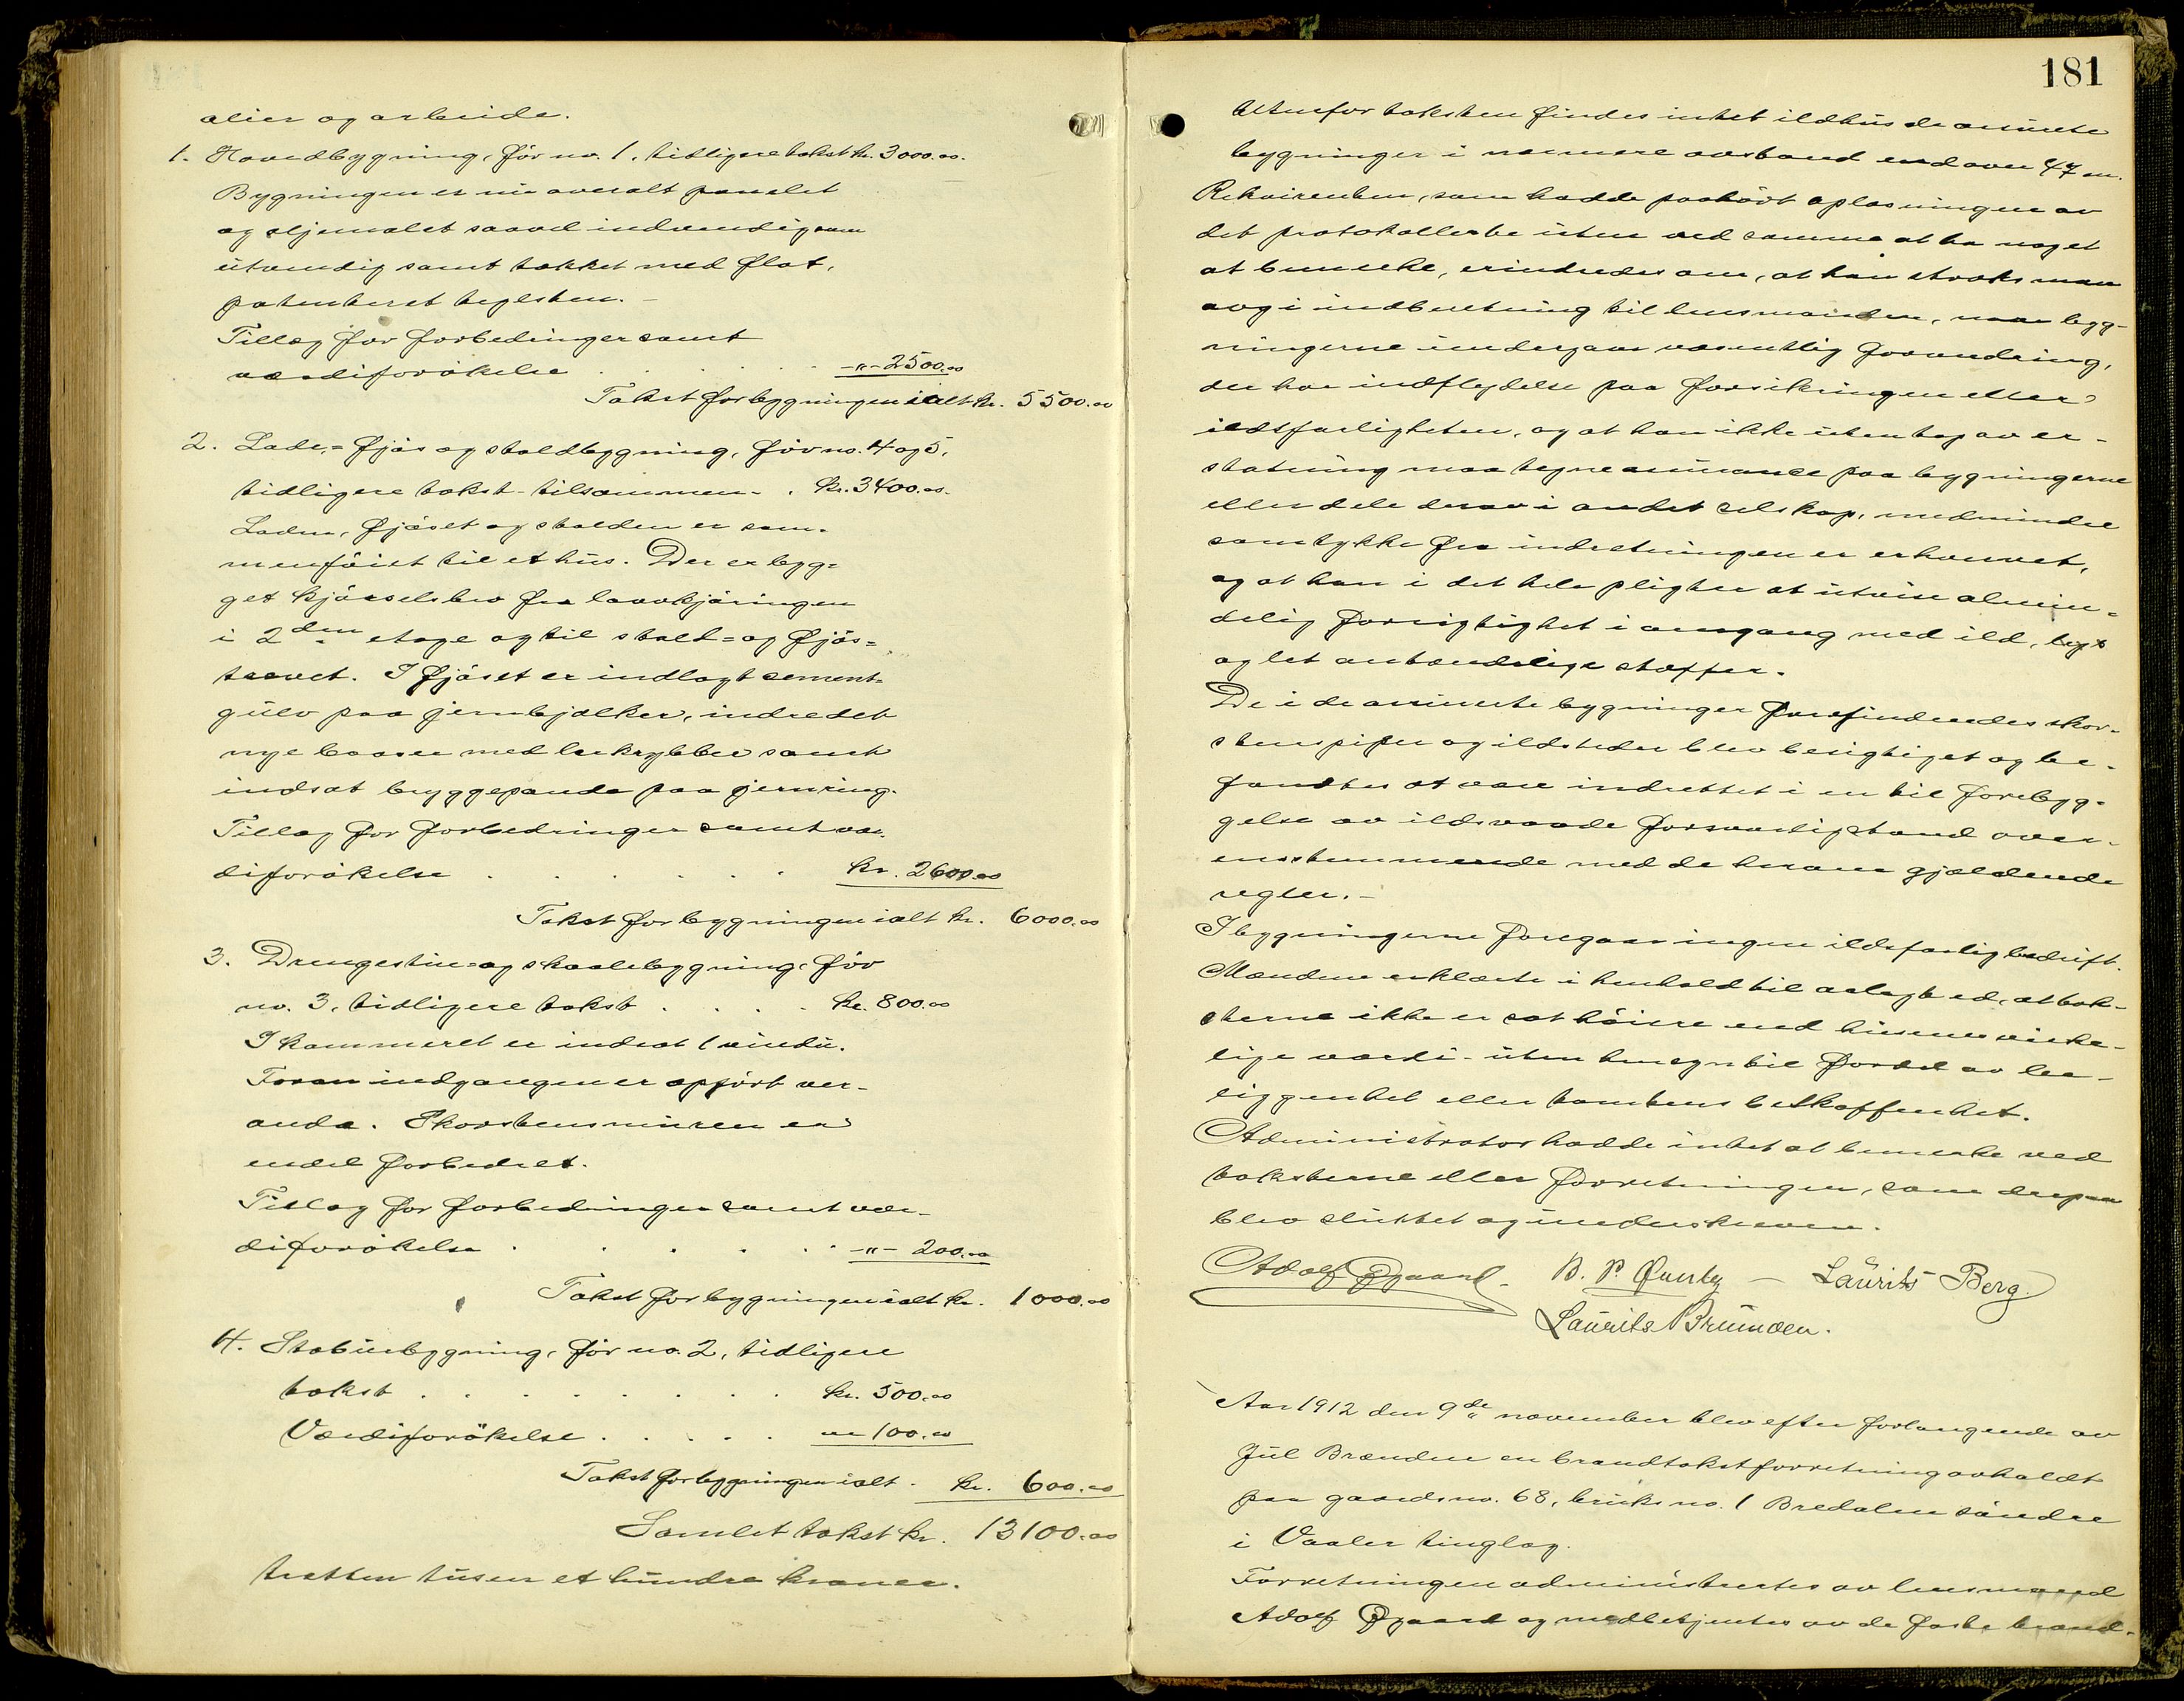 alier og arbeide.
1. Hovedbygning, før no. 1, tidligere takst kr. 3000.00.
Bygningen er nu overalt panelet
og oljemalet saavel indvendig som
utvendig samt tækket med flat,
patenteret teglsten. -
Tillæg for forbedringer samt
værdiforökelse . . . . . -"- 2500.00
Takst for bygningen ialt kr. 5500.00
2. Lade-, fjös og staldbygning, för no. 4 og 5,
tidligere takst tilsammen - . kr. 3400.00.
Laden, fjöset og stalden er sam-
menföiet til et hus. Der er byg-
get kjörselsbro fra laavekjöringen
i 2den etage og til stald- og fjös-
travet. I fjöset er indlagt sement-
gulv paa jernbjælker, indredet
nye baaser med krybber samt
indsat bryggepande paa jernring.
Tillæg for forbedringer samt vær-
diforökelse . . . . . . kr. 2600.00
Takst for bygningen ialt kr. 6000.00
3. Drengestue- og skaalebygning, för
no. 3, tidligere takst . . . . kr. 800.00
I kammeret er indsat 1 vindu.
Foran indgangen er opfört ver-
anda. Skorstensmuren er
endel forbedret.
Tillæg for forbedringer samt vær-
diforökelse . . . . . . -"- 200.00
Takst for bygningen ialt kr. 1000.00
4. Stabursbygning, för no. 2, tidligere
takst . . . . . . . . kr. 500.00
Værdiforökelse . . . . . -"- 100.00
Takst for bygningen ialt . kr. 600.00
Samlet takst kr. 13100.00
tretten tusen et hundre kroner.
181
Utenfor taksten findes intet ildhus de assurerte
bygninger i nærmere avstand end over 47 m.
Rekvirenten, som hadde paahört oplæsningen av
det protokollerte uten ved samme at ha noget
at bemerke, erindredes om, at han straks maa
avgi indberetning til lensmanden, naar byg-
ningerne undergaar væsentlig forandring,
der har indflydelse paa forsikringen eller
ildsfarligheten, og at han ikke uten tap av er-
statning maa tegne assurance paa bygningerne
eller dele derav i andet selskap, medmindre
samtykke fra indretningen er erhvervet,
og at han i det hele pligter at utvise almin-
delig forsigtighet i omgang med ild, lys
og let antændelige stoffer.
De i de assurerte bygninger forefindendes skor-
stenspiper og ildsteder blev besigtiget og be-
fandtes at være indrettet i en til forebyg-
gelse av ildsvaade forsvarlig stand over-
ensstemmende med de herom gjældende
regler. -
I bygningerne foregaar ingen ildsfarlig bedrift.
Mændene erklærte i henhold til avlagt ed, at tak-
sterne ikke er sat höiere end husenes virke-
lige værdi - uten hensyn til fordel av be-
liggenhet eller tomtens beskaffenhet.
Administrator hadde intet at bemerke ved
taksterne eller forretningen, som derpaa
blev sluttet og underskreven.
Adolf Ødgaard. B. P. Qvesby - Laurits Berg.
Laurits Brumoen.
Aar 1912 den 9de november blev efter forlangende av
Jul Brænden en brandtakstforretning avholdt
paa gaardsno. 68, bruksno. 1 Bredalen söndre
i Vaaler tinglag.
Forretningen administrertes av lensmand
Adolf Ødgaard og medbetjentes av de faste brand-